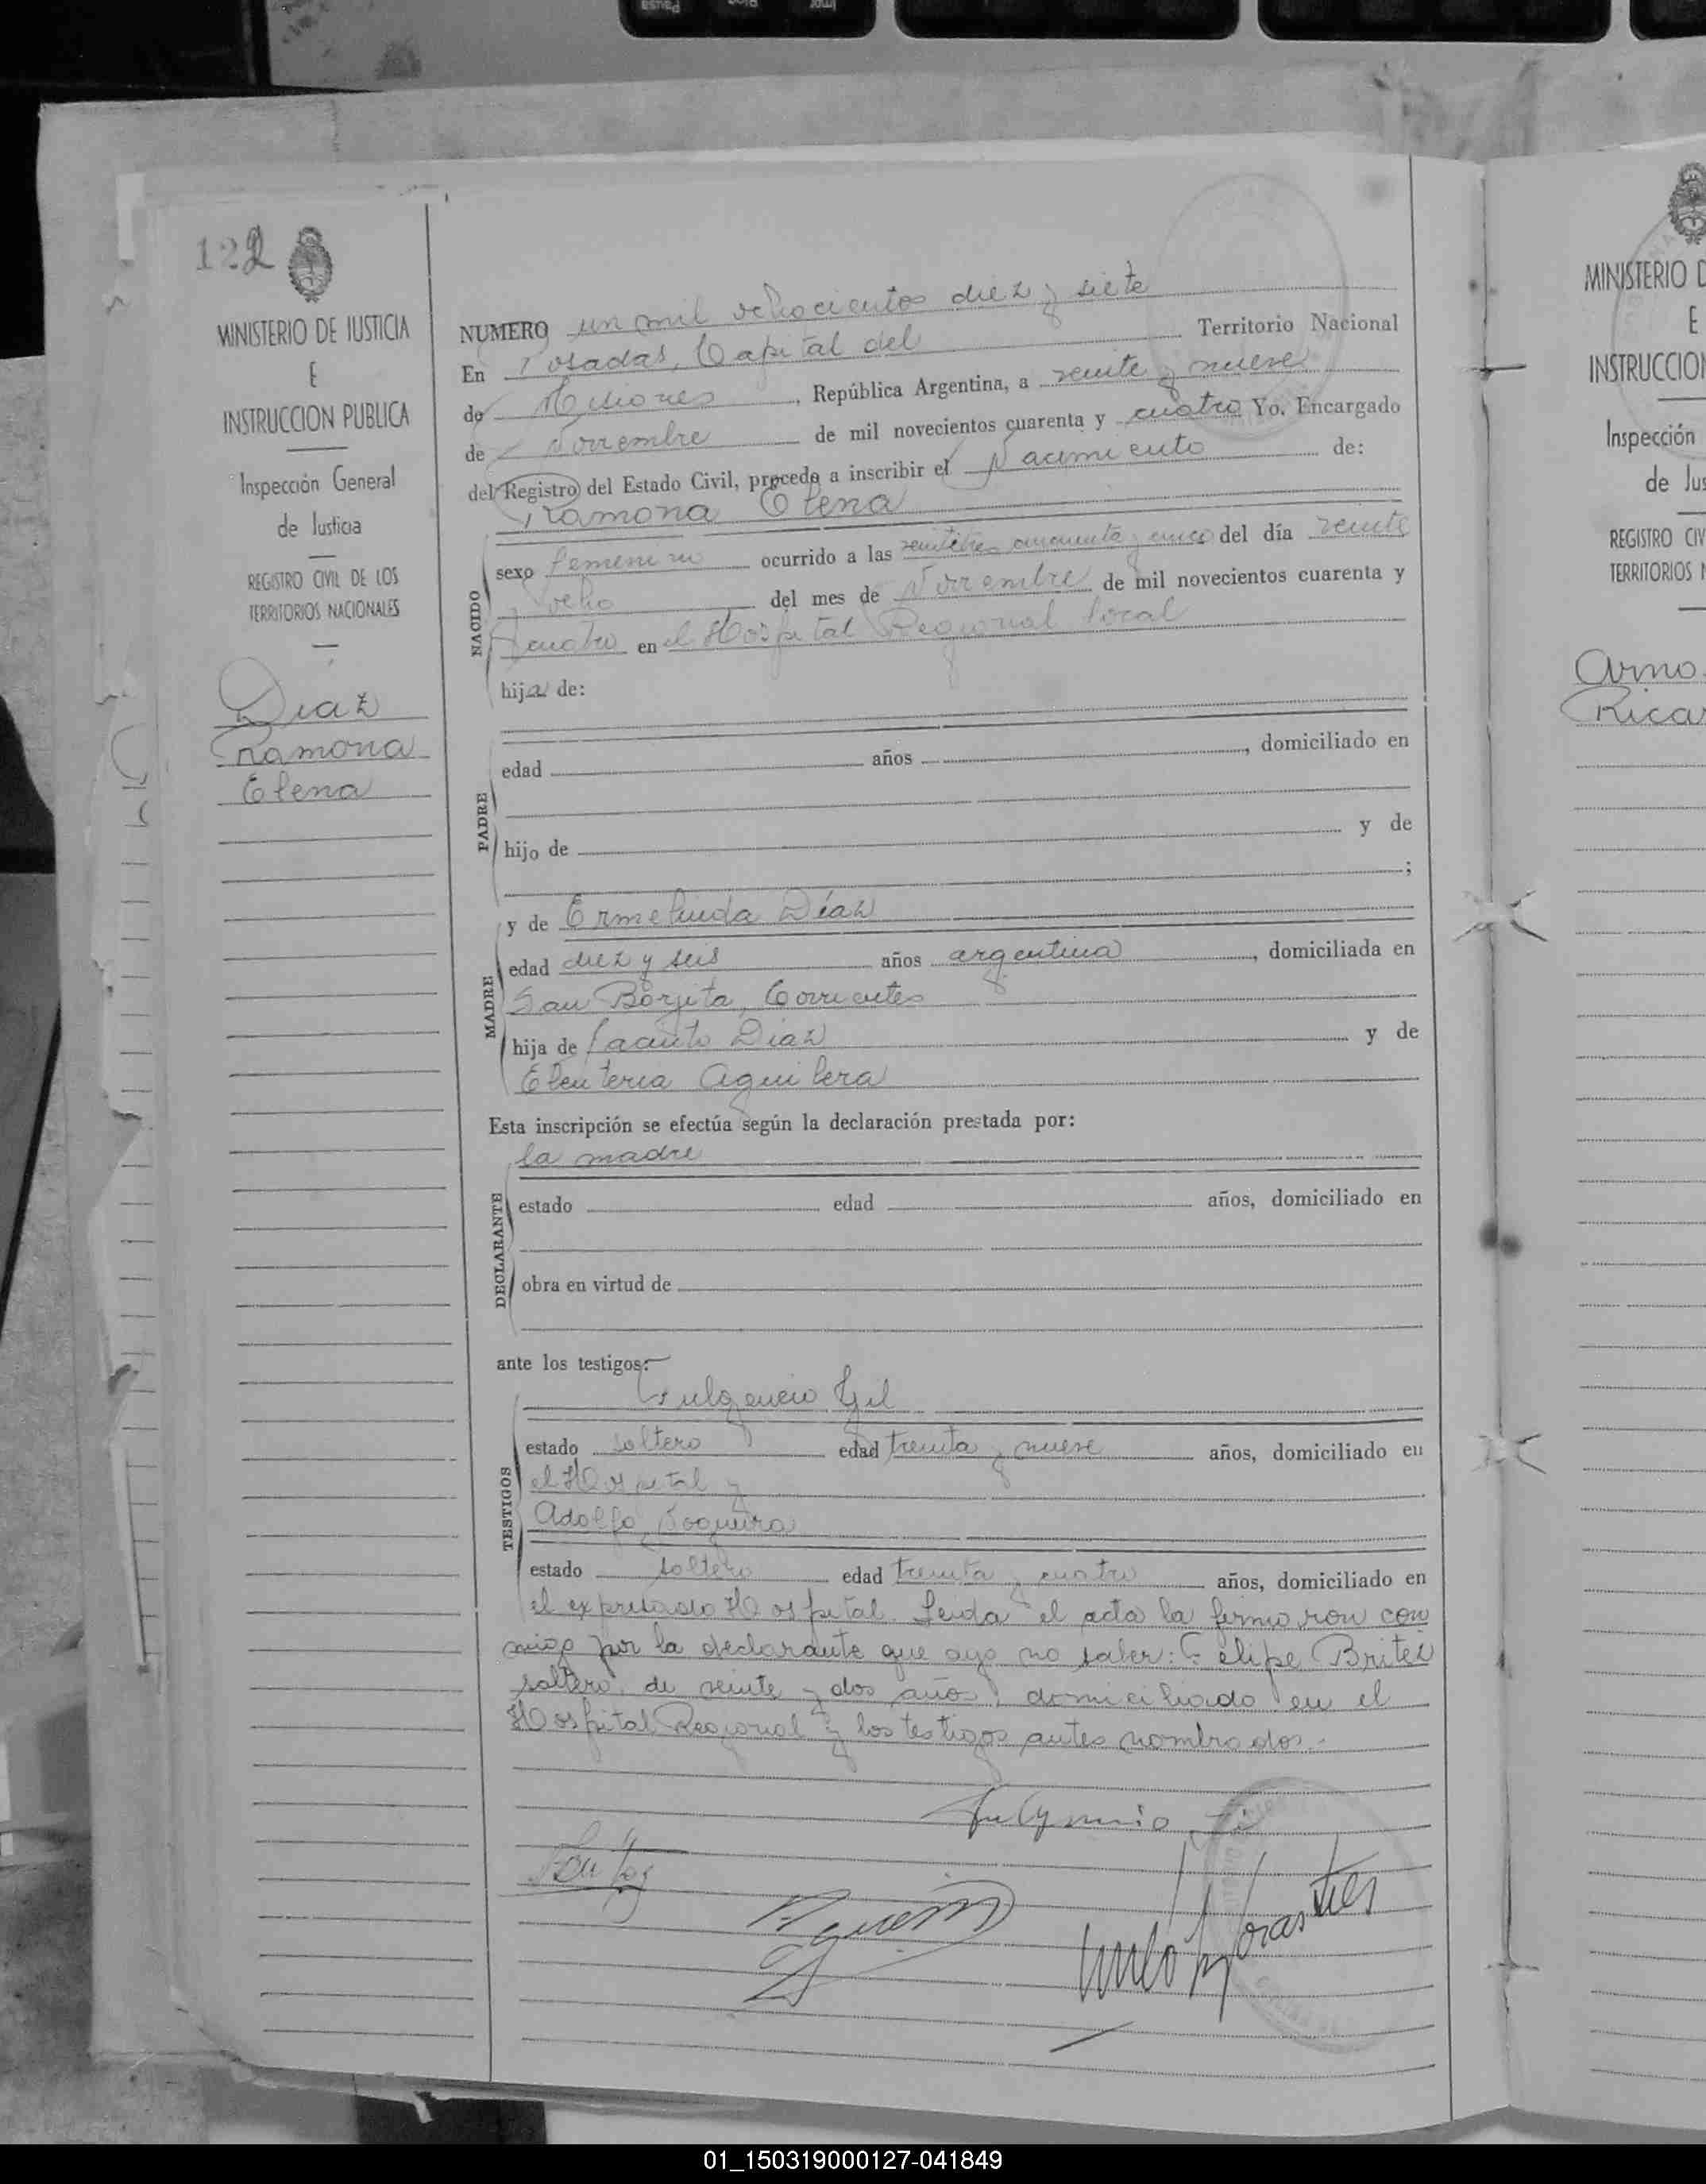 122
MINISTERIO DE JUSTICIA
E
INSTRUCCION PUBLICA
Inspección General
de Justicia
REGISTRO CIVIL DE LOS
TERRITORIOS NACIONALES
Diaz
Ramona
Elena
NUMERO un mil ochocientos diez y siete
En Posadas, Capital del Territorio Nacional
de Misiones, República Argentina, a veinte y nueve
de Noviembre de mil novecientos cuarenta y cuatro Yo, Encargado
del Registro del Estado Civil, procedo a inscribir el Nacimiento de:
Ramona Elena
NACIDO
sexo femenino ocurrido a las veintitres cincuenta y cinco del día veinte
y ocho del mes de Noviembre de mil novecientos cuarenta y
cuatro en el Hospital Regional local
hija de:
PADRE
edad años , domiciliado en
hijo de y de
;
MADRE
y de Ermelinda Díaz
edad diez y seis años argentina, domiciliada en
San Borjita, Corrientes
hija de Jacinto Diaz y de
Eleuteria Aguilera
Esta inscripción se efectúa según la declaración prestada por:
la madre
DECLARANTE
estado edad años, domiciliado en
obra en virtud de
ante los testigos:
TESTIGOS
Fulgencio Gil
estado soltero edad treinta y nueve años, domiciliado en
el Hospital y
Adolfo Noguera
estado soltero edad treinta y cuatro años, domiciliado en
el expresado Hospital. Leida el acta la firmaron con
migo por la declarante que dijo no saber: Felipe Britez
soltero, de veinte y dos años, domiciliado en el
Hospital Regional y los testigos antes nombrados.-
MINISTERIO D
E
INSTRUCCION
Inspección
de Jus
REGISTRO CIV
TERRITORIOS N
Arno
Ricar
01_150319000127-041849